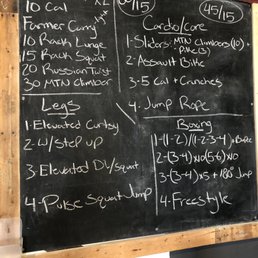 10 Cal x2
Farmer Carry
10 Rack Lunge
15 Rack Squat
20 Russian Twist
30 MTN Climber
Legs
1-Elevated Curtsy
2-w/ step up
3-Elevated DL/squat
4-Pulse Squat Jump
/15
45/15
Cardio/core
1-Sliders: MTN Climbers (10) +
Pike (3)
2-Assault Bike
3-5 Cal + Crunches
4-Jump Rope
Boxing
1-(1-2)/(1-2-3-4)
2-(3-4)x10(5-6)x10
3-(3-4)x5 + 180° Jump
4-Freestyle